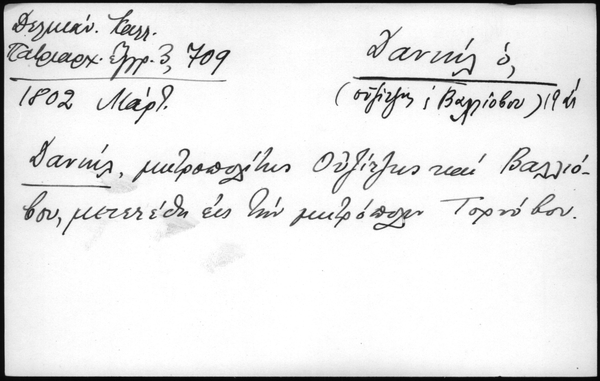 Δελικάν. Καλλ.
Πατριαρχ. Ἔγγρ. 3, 709
1802 Μάρτ.
Δανιήλ ὁ,
(Οὐζίτζης & Βαλλιόβου)
Δανιήλ, μητροπολίτης Οὐζίτζης καί Βαλλιό-
βου, μετετέθη εἰς τήν μητρόπολιν Τορνόβου.